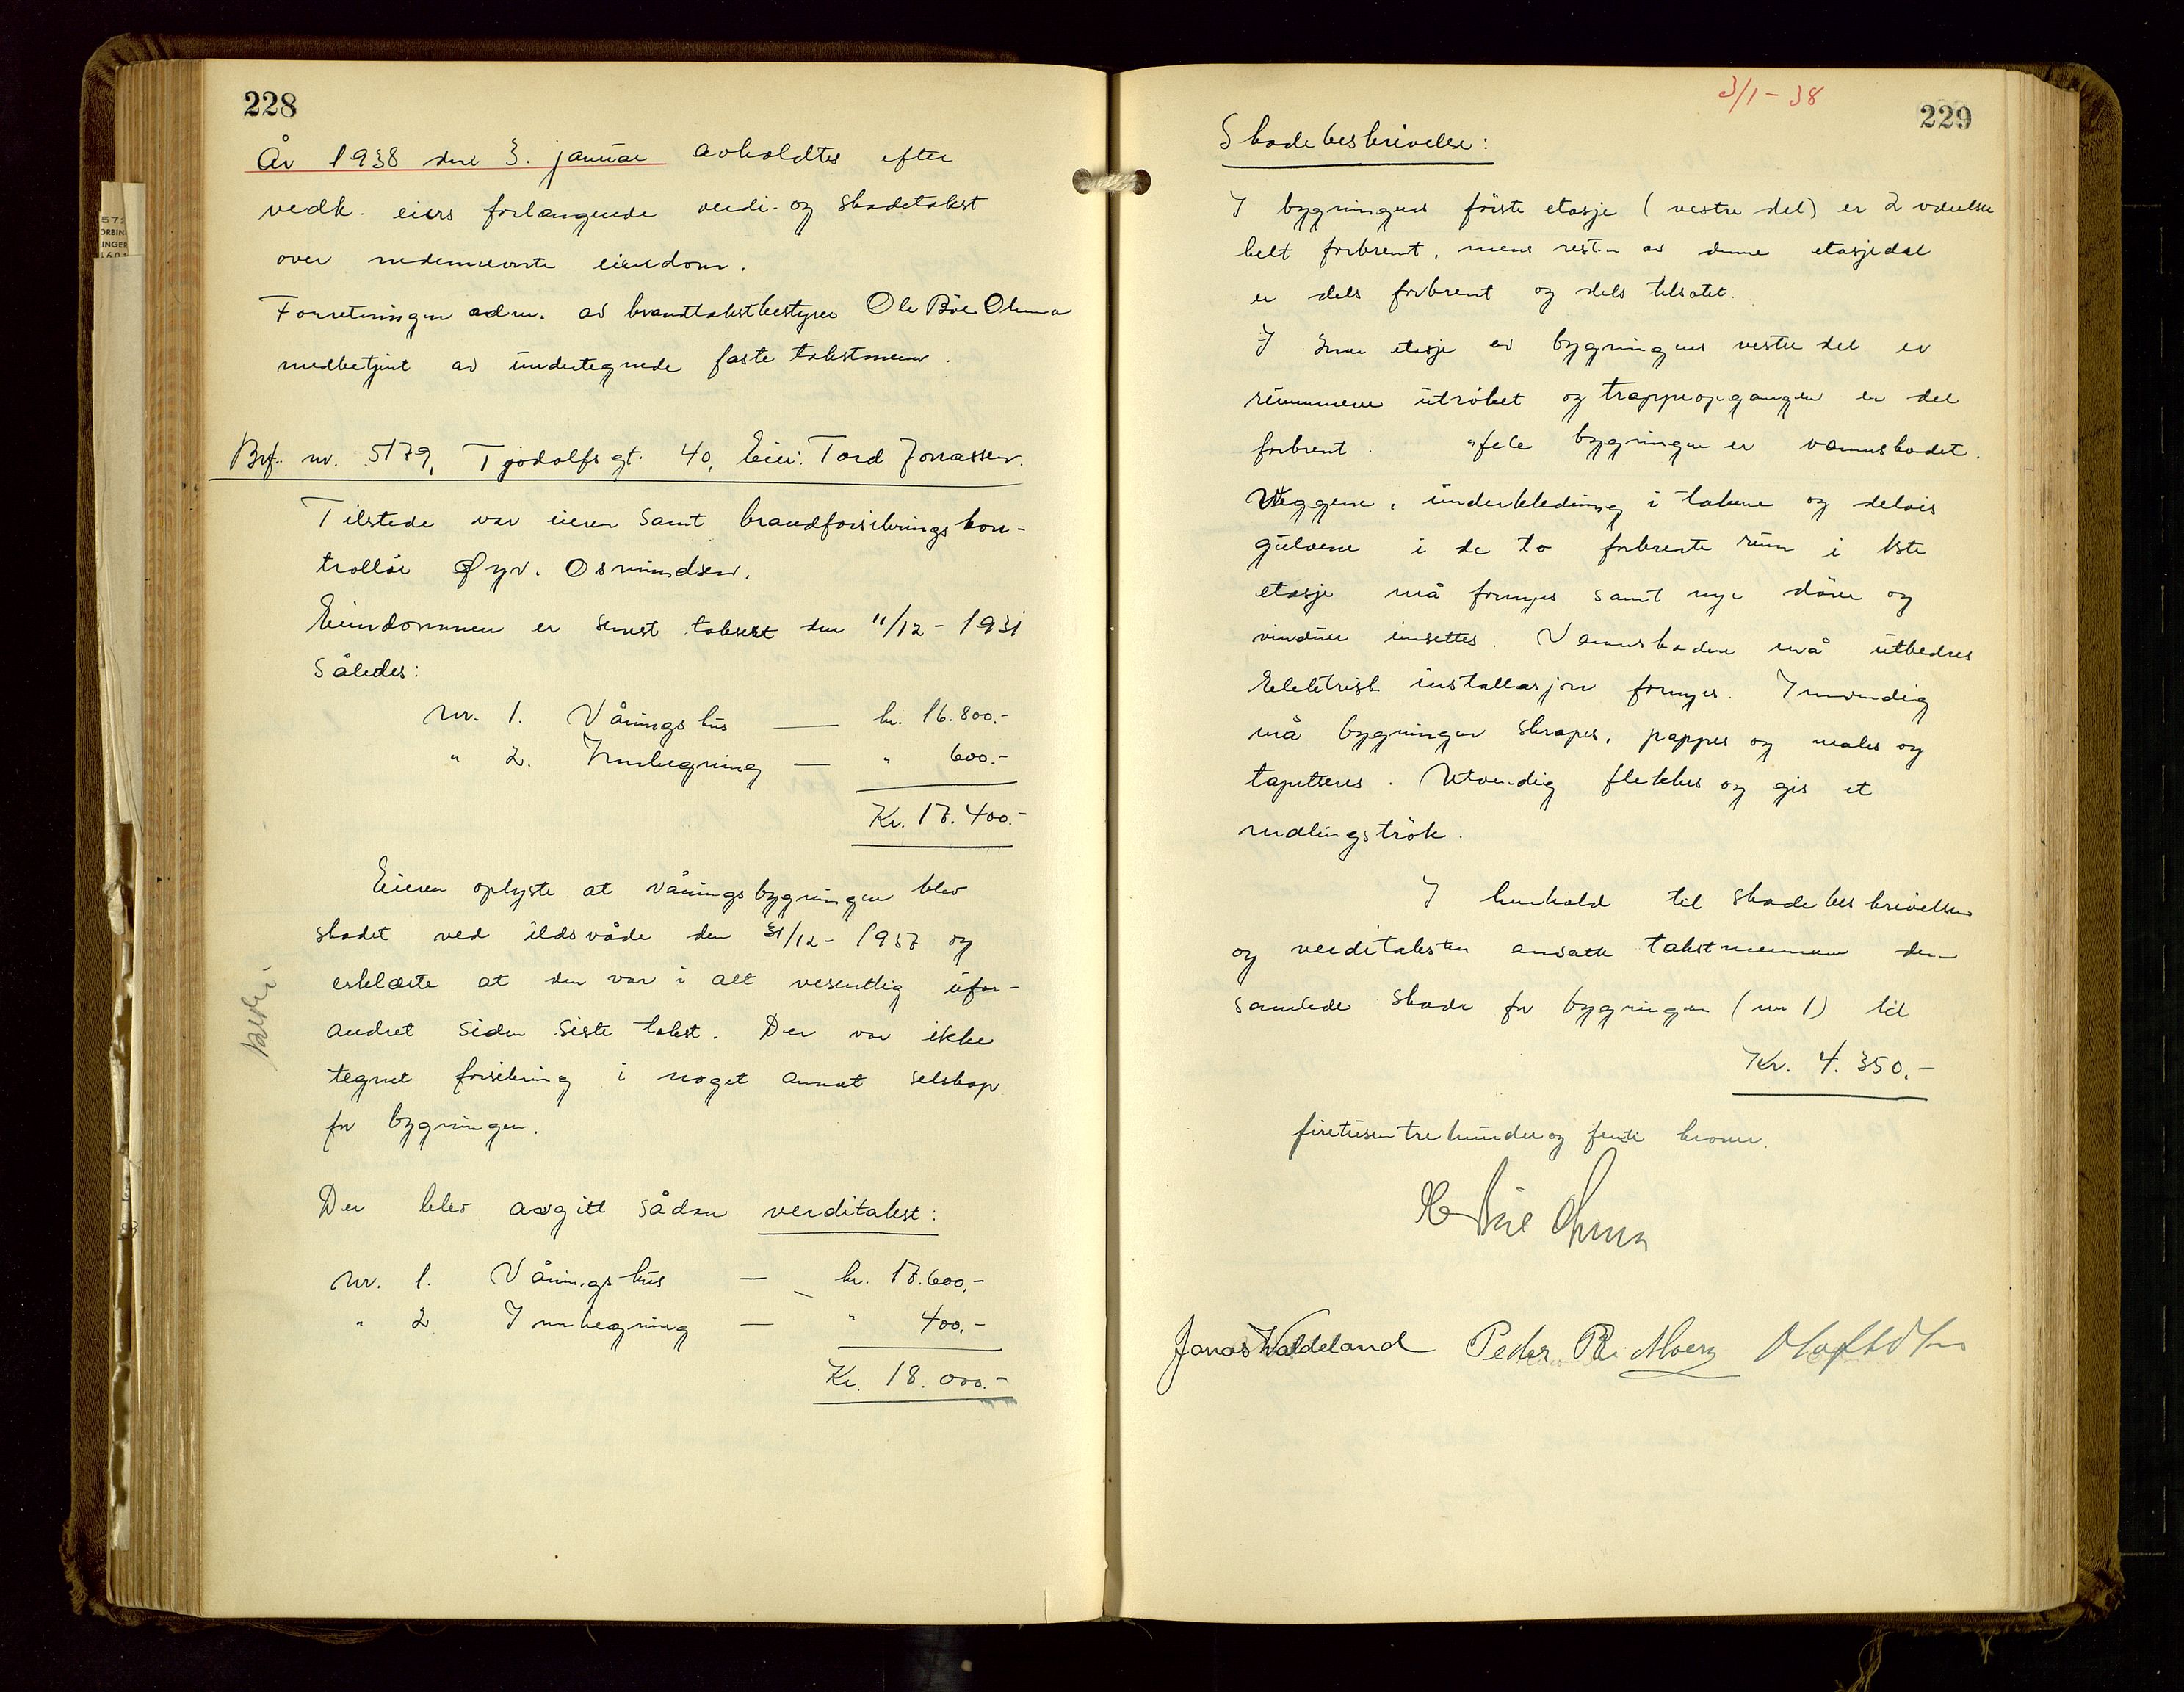 228
År 1938 den 3. januar avholdtes efter
vedk. eiers forlangende verdi- og skadetakst
over nedennevnte eiendom.
Forretningen adm. av brandtakstbestyrer Ole Böe Ohma
medbetjent av undertegnede faste takstmenn.
Brf. nr. 5179, Tjodolfsgt. 40, Eier: Tord Jonassen.
Tilstede var eieren samt brandforsikringskon-
trollör Öyv. Osmundsen.
Eiendommen er senest taksert den 11/12 - 1931
således:
Nr. 1. Våningshus — kr. 16.800.-
" 2. Innhegning — " 600.-
Kr. 17.400.-
Eieren oplyste at våningsbygningen blev
skadet ved ildsvåde den 31/12 - 1937 og
erklærte at den var i alt vesentlig ufor-
andret siden siste takst. Der var ikke
tegnet forsikring i noget annet selskap
for bygningen.
Der blev avgitt sådan verditakst:
Nr. 1. Våningshus — kr. 17.600,-
" 2 Innhegning — " 400,-
Kr. 18.000.-
3/1 - 38
229
Skadebeskrivelse:
I bygningens förste etasje (vestre del) er 2 værelser
helt forbrent, mens resten av denne etasjedel
er dels forbrent og dels tilsotet.
I 2nen etasje av bygningens vestre del er
rummene utröket og trappeopgangen er del
forbrent. Hele bygningen er vannskadet.
Veggene, underkledning i takene og delvis
gulvene i de to forbrente rum i 1ste
etasje må fornyes samt nye dörer og
vinduer innsettes. Vannskadene må utbedres
Elektrisk installasjon fornyes. Innvendig
må bygningen skrapes, pappes og males og
tapetseres. Utvendig flekkes og gis et
malingströk.
I henhold til skadebeskrivelsen
og verditaksten ansatte takstmennene den
samlede skade for bygningen (nr 1) til
Kr. 4.350.-
firetusentrehundreogfemti kroner.
Jonas Waldeland Peder R.